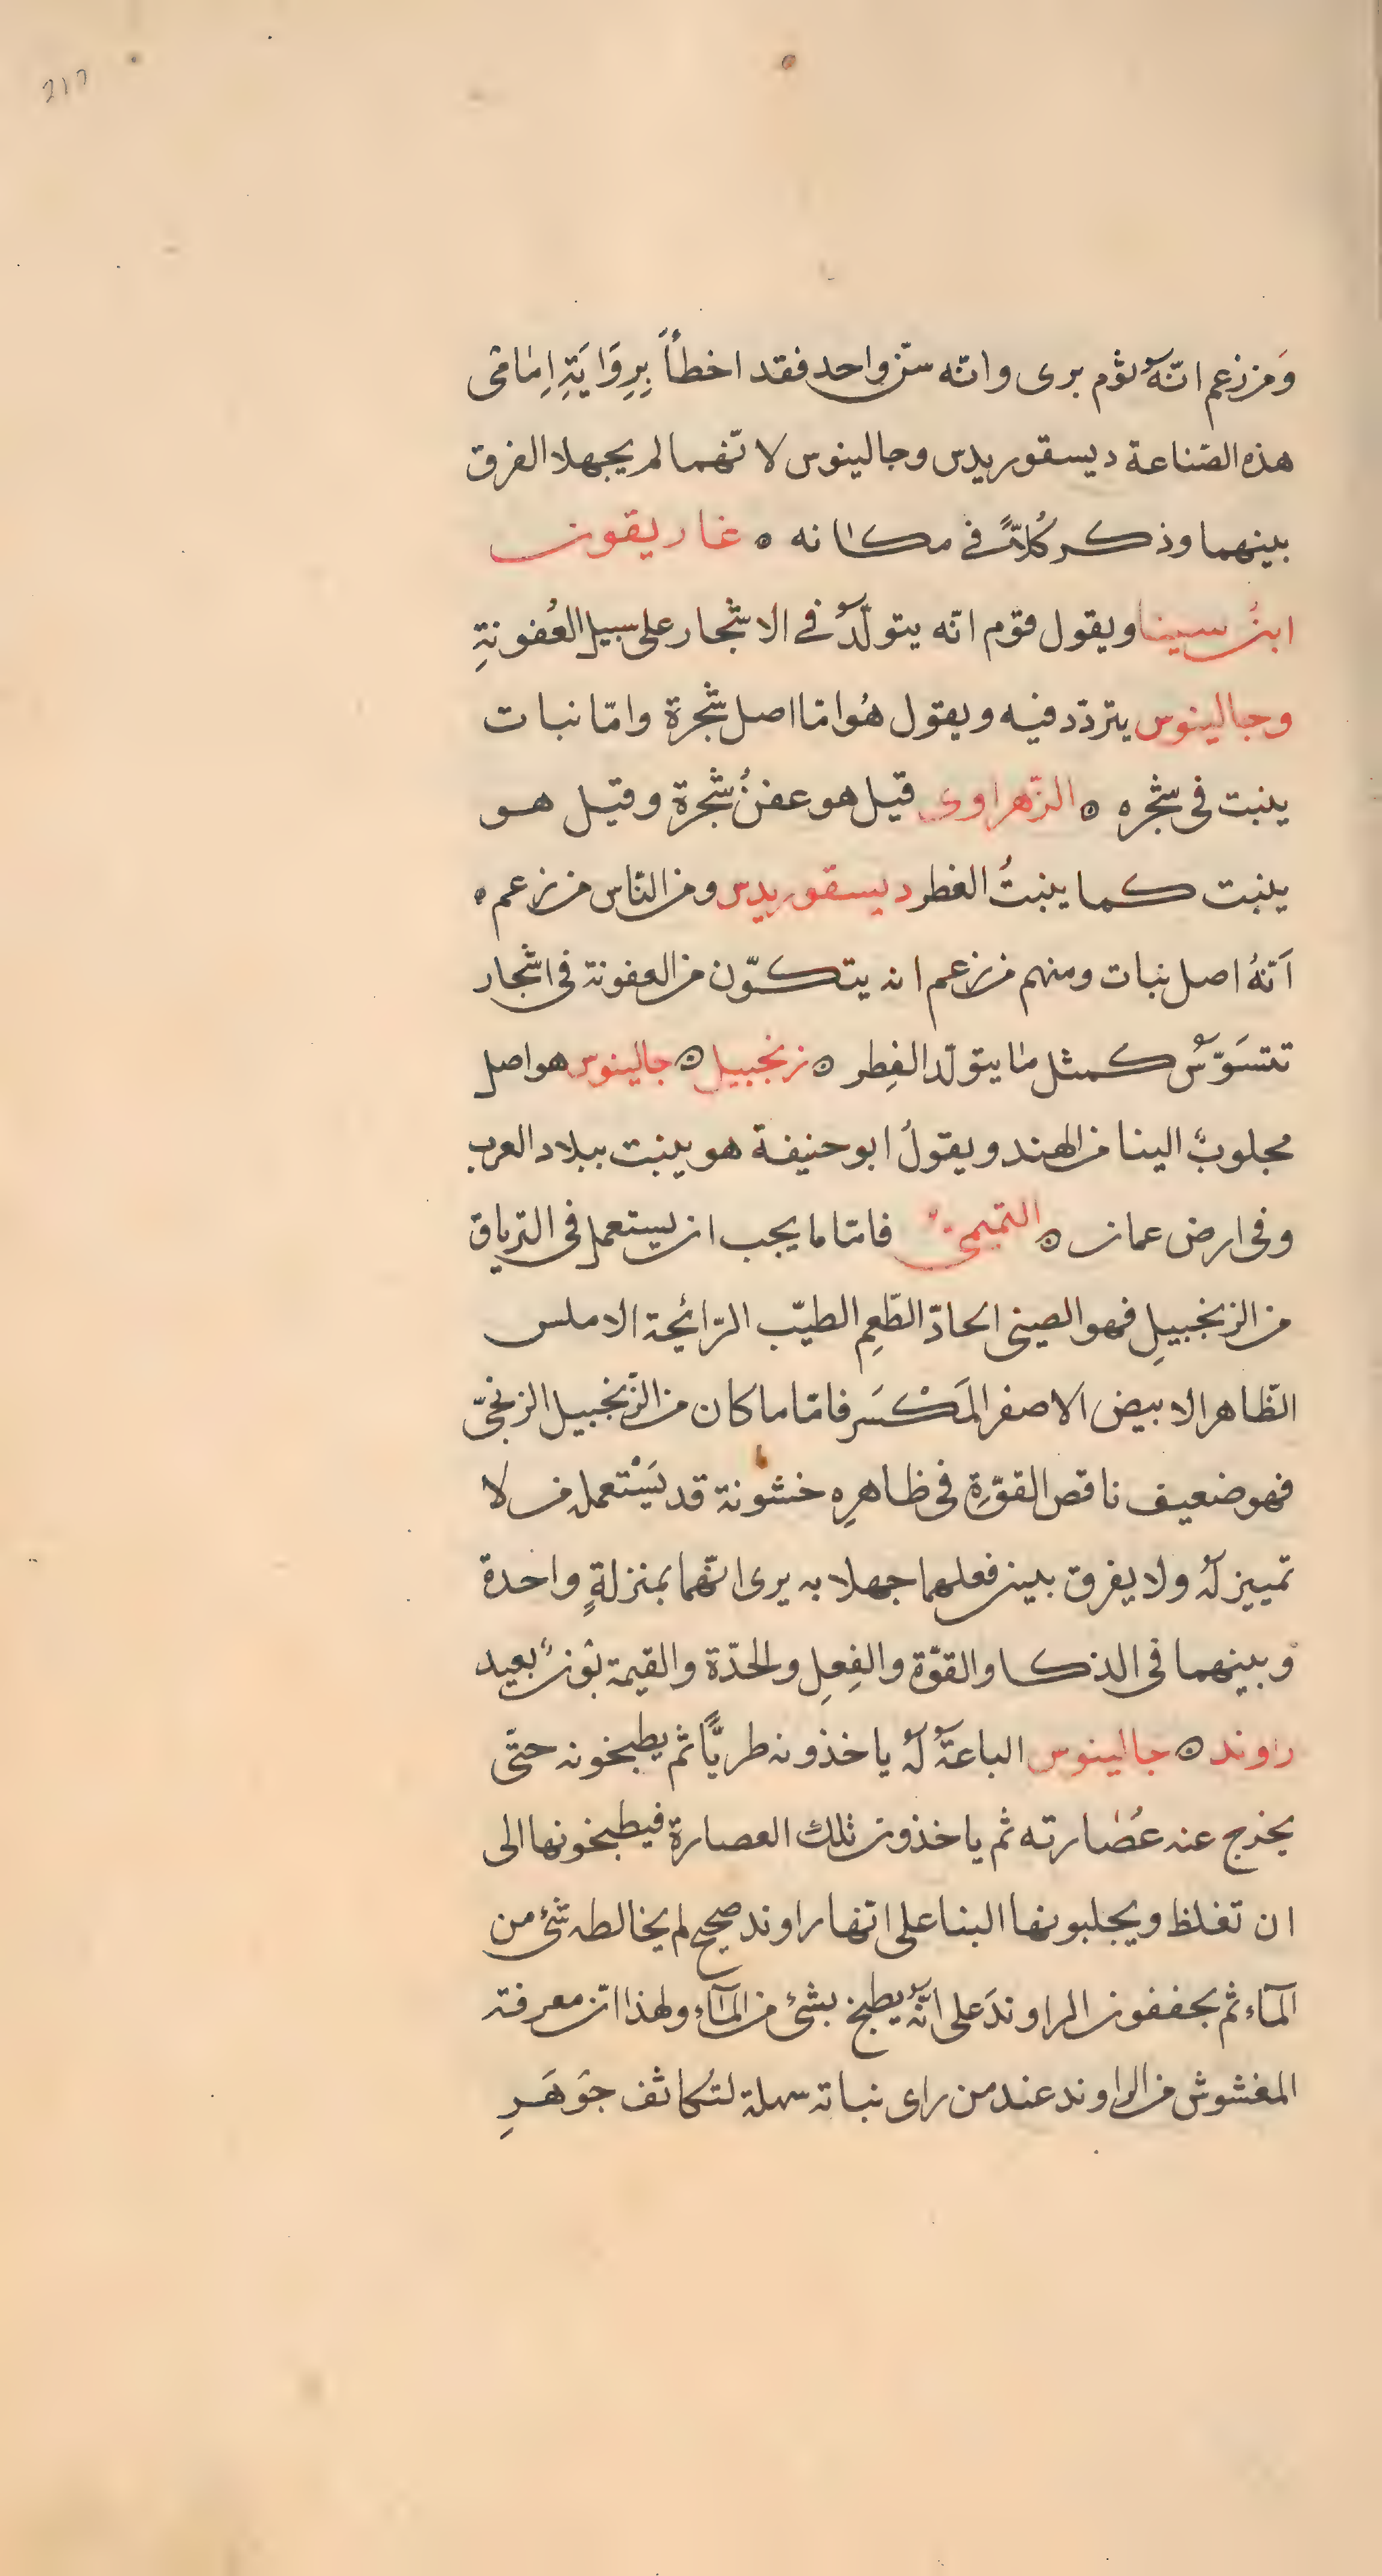 217
وَمن زعم انّهُ ثوم برى وانّه سنّ واحد فقد اخطأَ بِرِوَايَةِ اِمَامَى
هذه الصّناعة ديسقوريدس وجالينوس لانّهما لم يجهلا الفرق
بينهما وذكر كُلاًّ فى مكانه ه غاريقون
ابنُ سينا ويقول قوم انّه يتولّدُ فى الاشجار على سبيل العُفونةِ
وجالينوس يتردّد فيه ويقول هُو امّا اصل شجرة وامّا نبات
ينبت فى شجره ه الزّهراوى قيل هو عفنُ شجرة وقيل هو
ينبت كما ينبتُ الفطر ديسقوريدس ومن النّاس من زعم ه
اَنّهُ اصل نبات ومنهم من زعم انه يتكوّن من العفونة فى اشجار
تتسَوَّسُ كمثل ما يتولّد الفِطر ه زنجبيل ه جالينوس هو اصل
مجلوبٌ الينا من الهند ويقولُ ابو حنيفة هو ينبت ببلاد العرب
وفى ارض عمان ه التميمى فامّا ما يجب ان يستعمل فى الترياق
من الزنجبيلِ فهو الصينى الحادّ الطّعِم الطيّب الرّائحة الاملس
الظّاهر الابيض الاصفر المَكْسَر فامّا ما كان من الزّنجبيل الزنجىّ
فهو ضعيف ناقص القوّةِ فى ظاهرِه خشونة قد يَسْتعمله من لا
تمييز لهُ ولا يفرق بين فعلهما جهلا به يرى انّهما بمنزلةٍ واحدة
وَبينهما فى الذكا والقوّة والفِعلِ والحدّة والقيمة بَونٌ بعيد
راوند ه جالينوس الباعةُ لهُ ياخذونه طريًّا ثم يطبخونه حتّى
يخرج عنه عُصَارته ثم ياخذون تلك العصارة فيطبخونها الى
ان تغلظ ويجلبونها الينا على انّها راوند صحيح لم يخالطه شئ من
المآء ثم يجففون الراوندَ على انّهُ يطبخ بشئ من المآءِ ولهذا انّ معرفة
المغشوش من الراوند عند من راى نباته سهلة لتكاثف جَوهَرِ